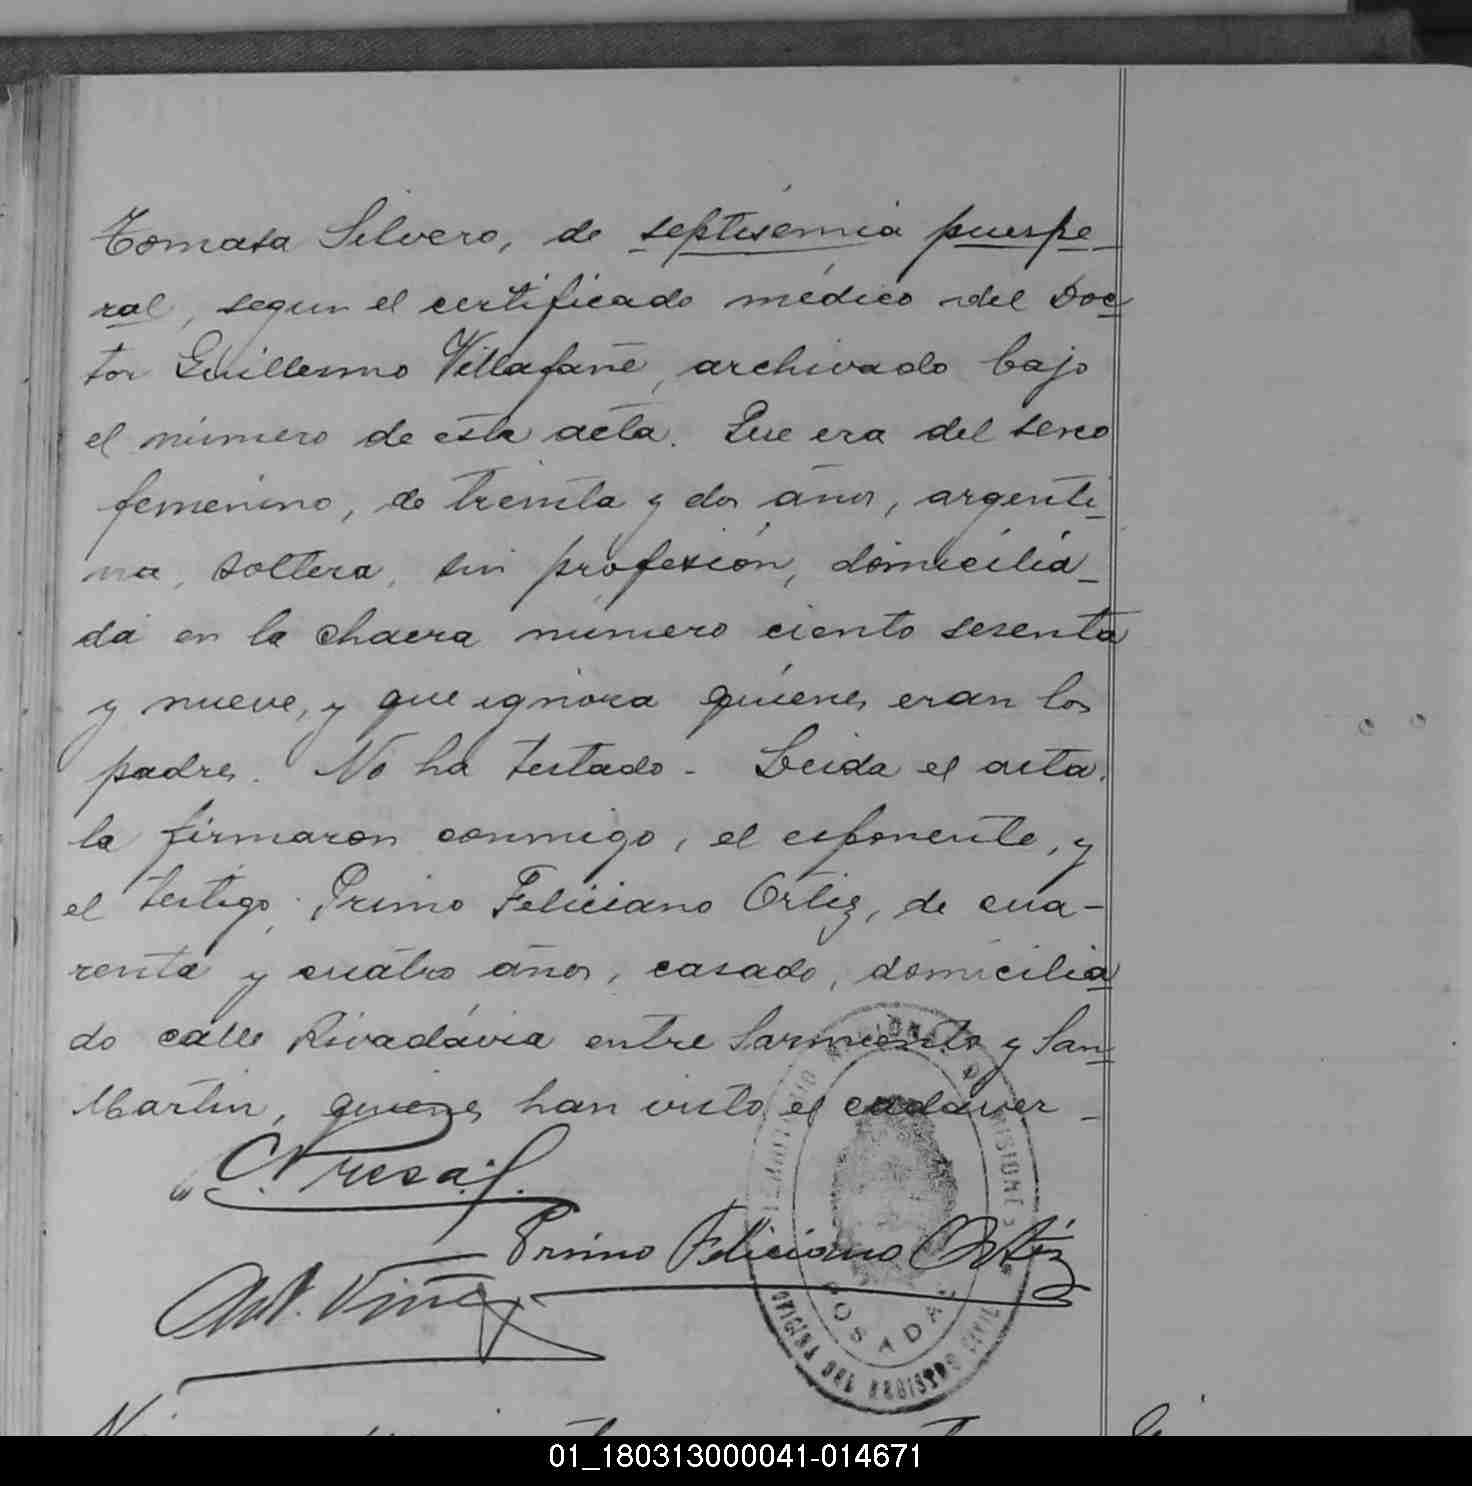 Tomasa Silvero, de septisemia puerpe-
ral, segun el certificado médico del Doc
tor Guillermo Villafañe, archivado bajo
el número de este acta. Que era del sexo
femenino, de treinta y dos años, argenti-
na, soltera, sin profesión, domicilia-
da en la chacra número ciento sesenta
y nueve, y que ignora quienes eran los
padres. No ha testado - Leida el acta,
la firmaron conmigo, el esponente, y
el testigo, Primo Feliciano Ortiz, de cua-
renta y cuatro años, casado, domicilia
do calle Rivadávia entre Sarmiento y San
Martin, quienes han visto el cadáver -
Primo Feliciano Ortiz
POSADAS
OFICINA DEL REGISTRO CIVIL
01_180313000041-014671